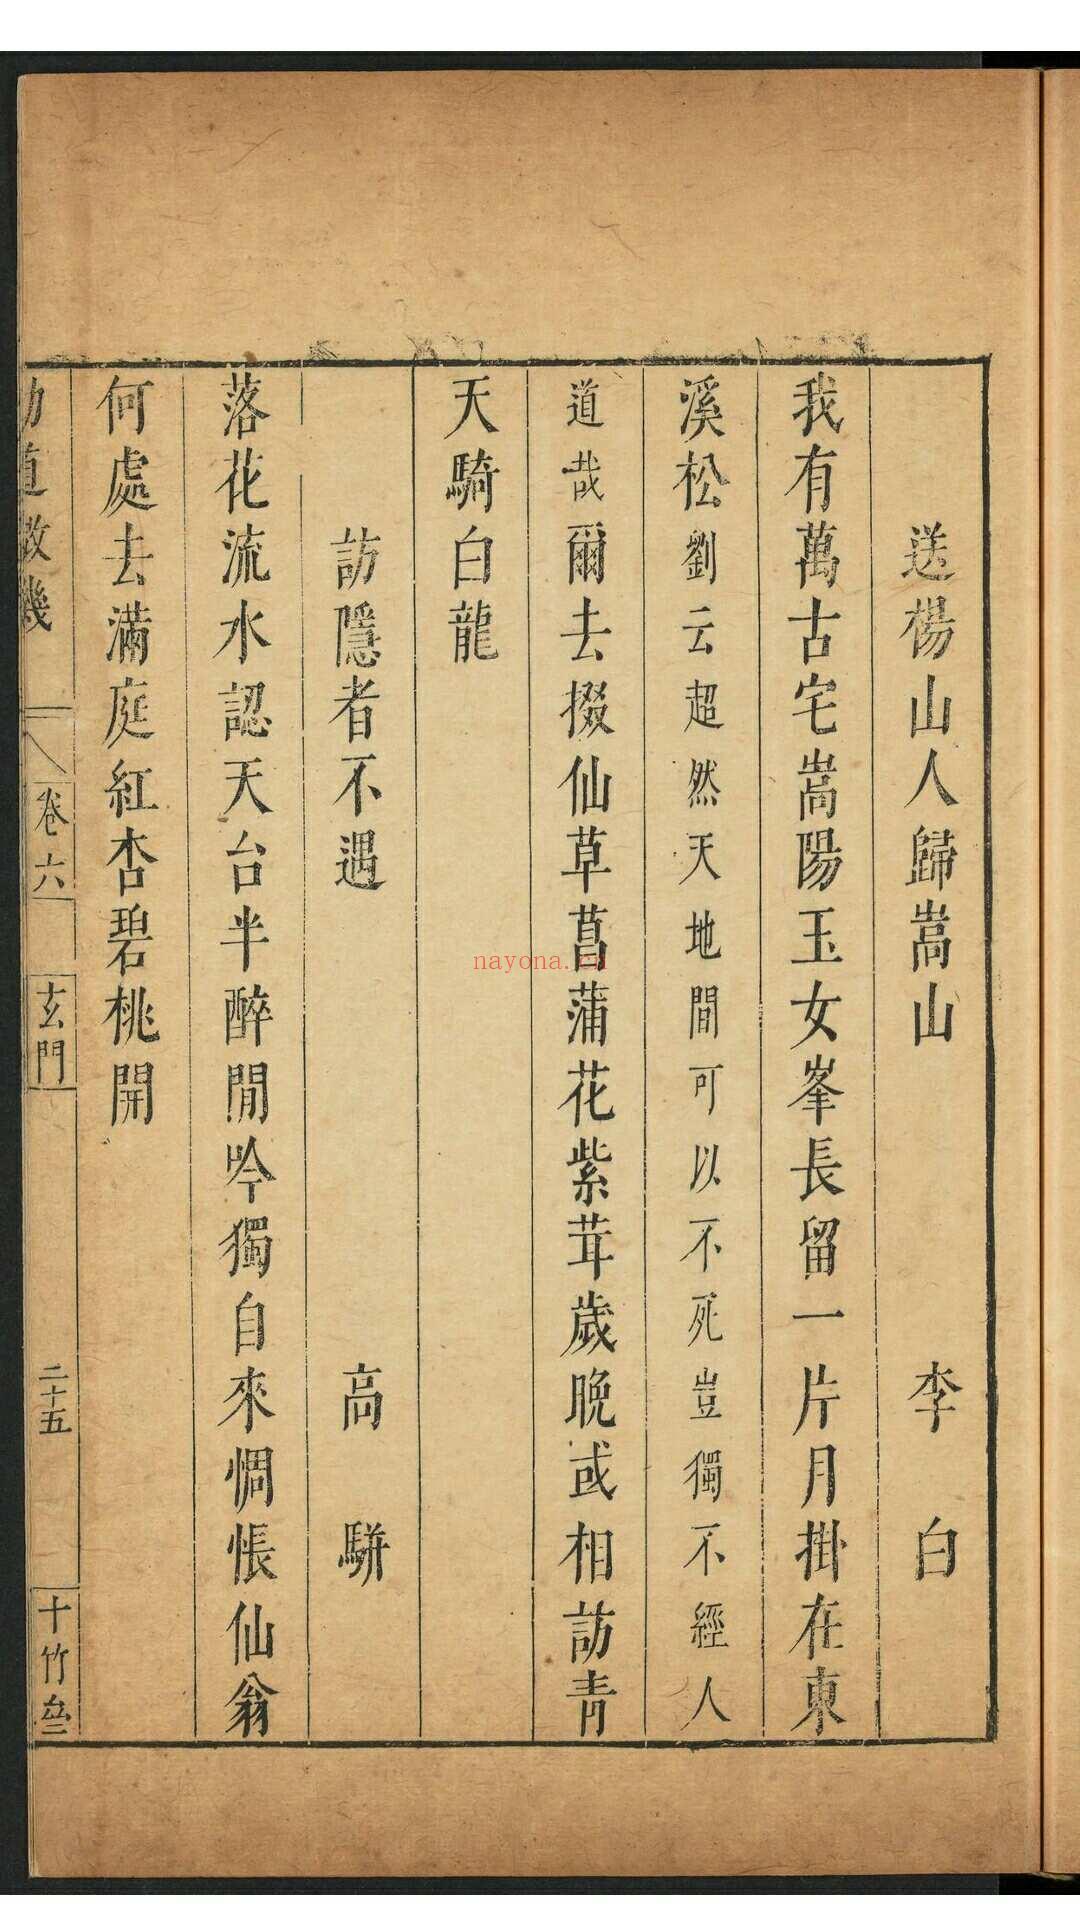 送楊山人歸嵩山 李白
我有萬古宅嵩陽玉女峯長留一片月掛在東
溪松劉云超然天地間可以不死豈獨不經人
道哉爾去掇仙草菖蒲花紫茸歲晚或相訪青
天騎白龍
訪隱者不遇 高駢
落花流水認天台半醉閒吟獨自來惆悵仙翁
何處去滿庭紅杏碧桃開
卷六
玄門
二十五
十竹叁
nayona.cn